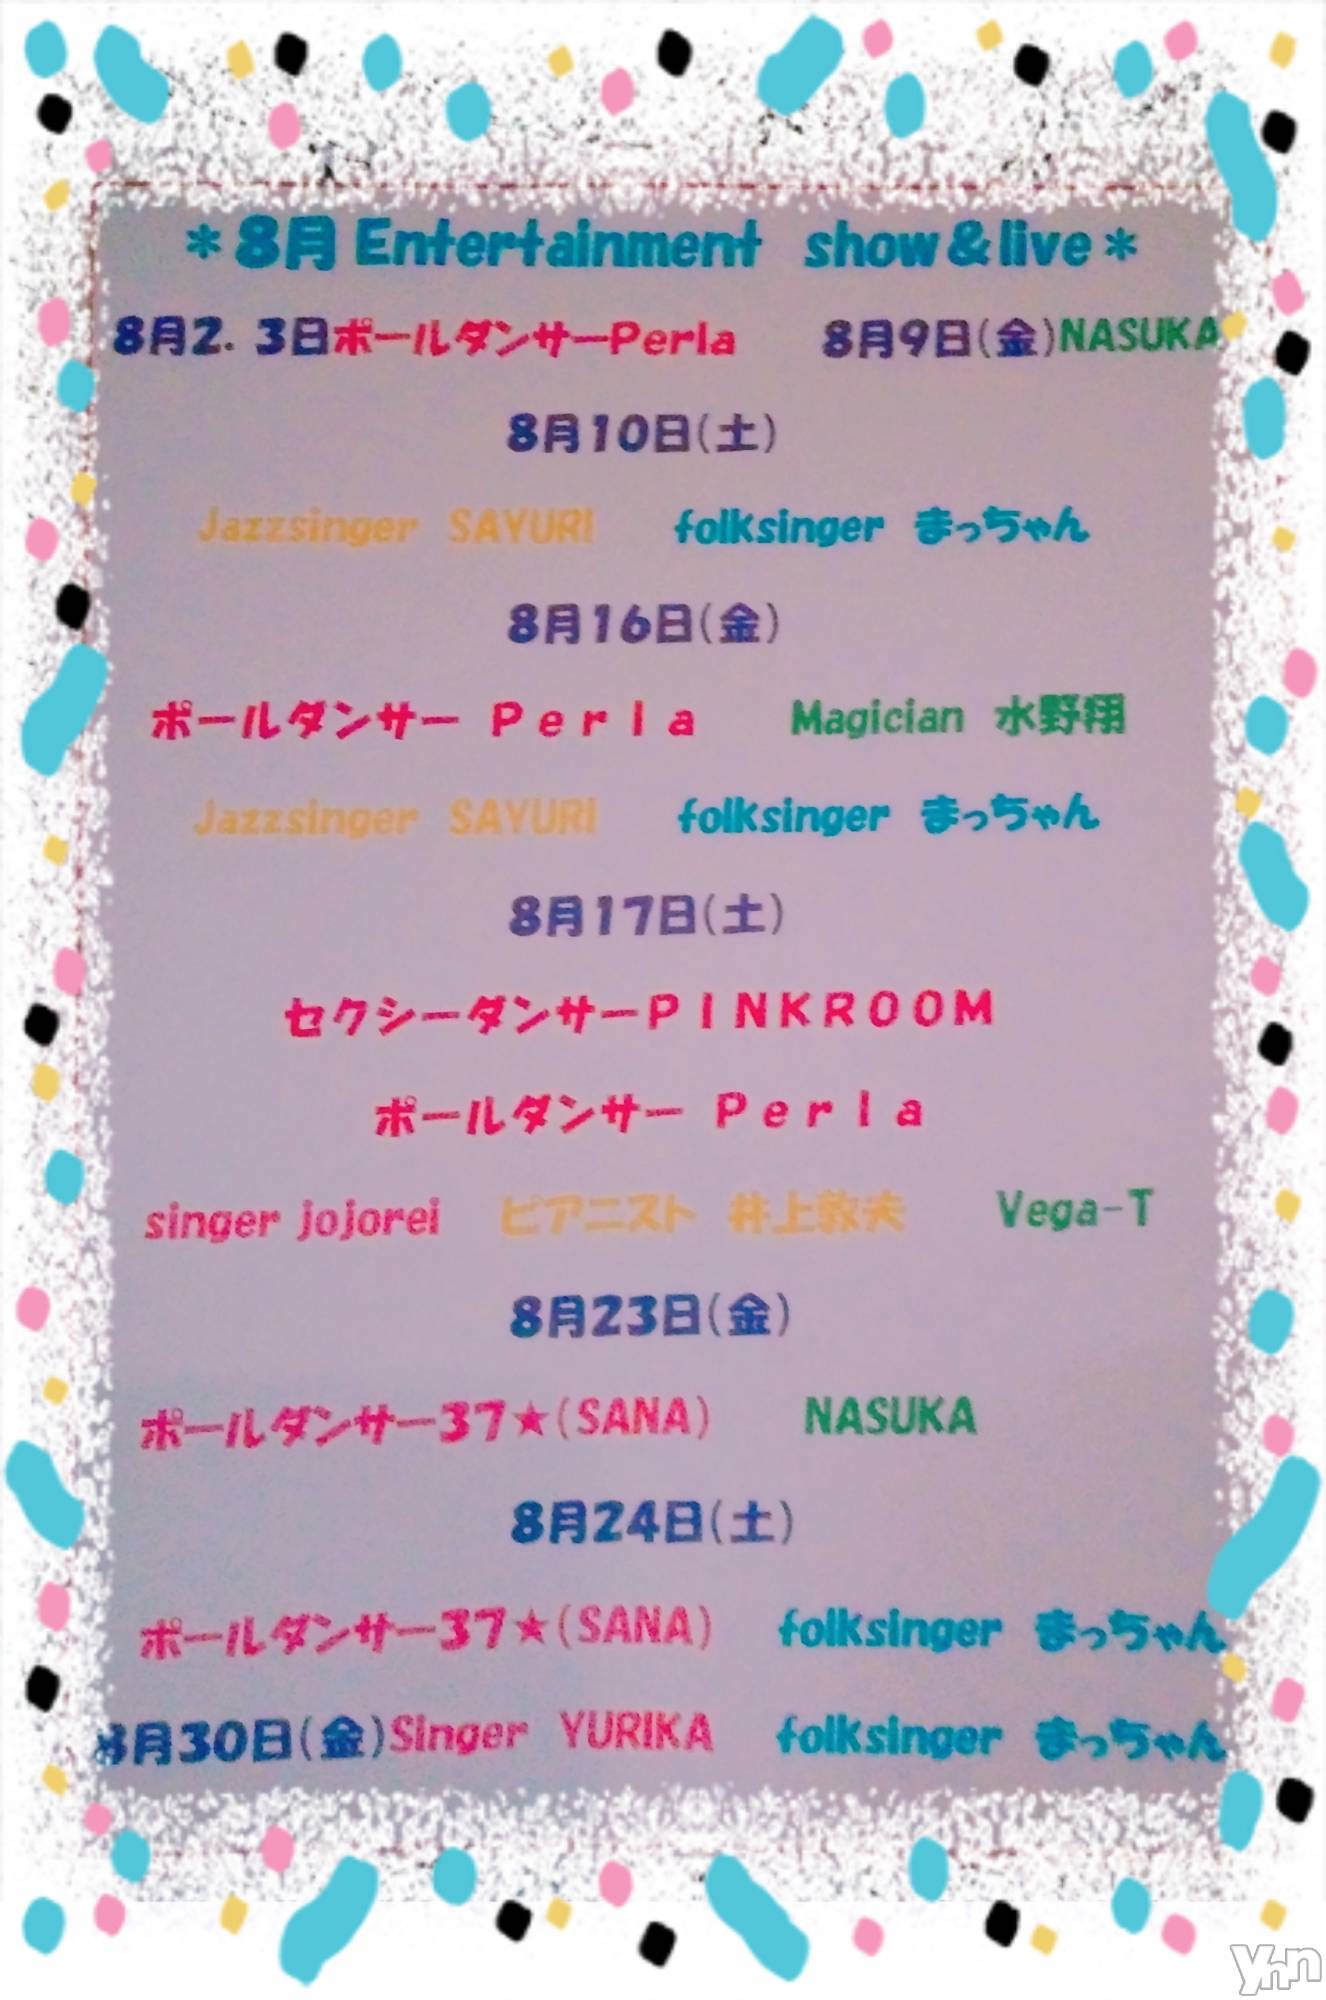 ＊8月 Entertainment show＆live＊
8月2．3日ポールダンサーPerla 8月9日(金)NASUKA
8月10日(土)
Jazzsinger SAYURI folksinger まっちゃん
8月16日(金)
ポールダンサー Ｐｅｒｌａ Magician 水野翔
Jazzsinger SAYURI folksinger まっちゃん
8月17日(土)
セクシーダンサーＰＩＮＫＲＯＯＭ
ポールダンサー Ｐｅｒｌａ
singer jojorei ピアニスト 井上敦夫 Vega-T
8月23日(金)
ポールダンサー37★(SANA) NASUKA
8月24日(土)
ポールダンサー37★(SANA) folksinger まっちゃん
8月30日(金)Singer YURIKA folksinger まっちゃん
Ynn